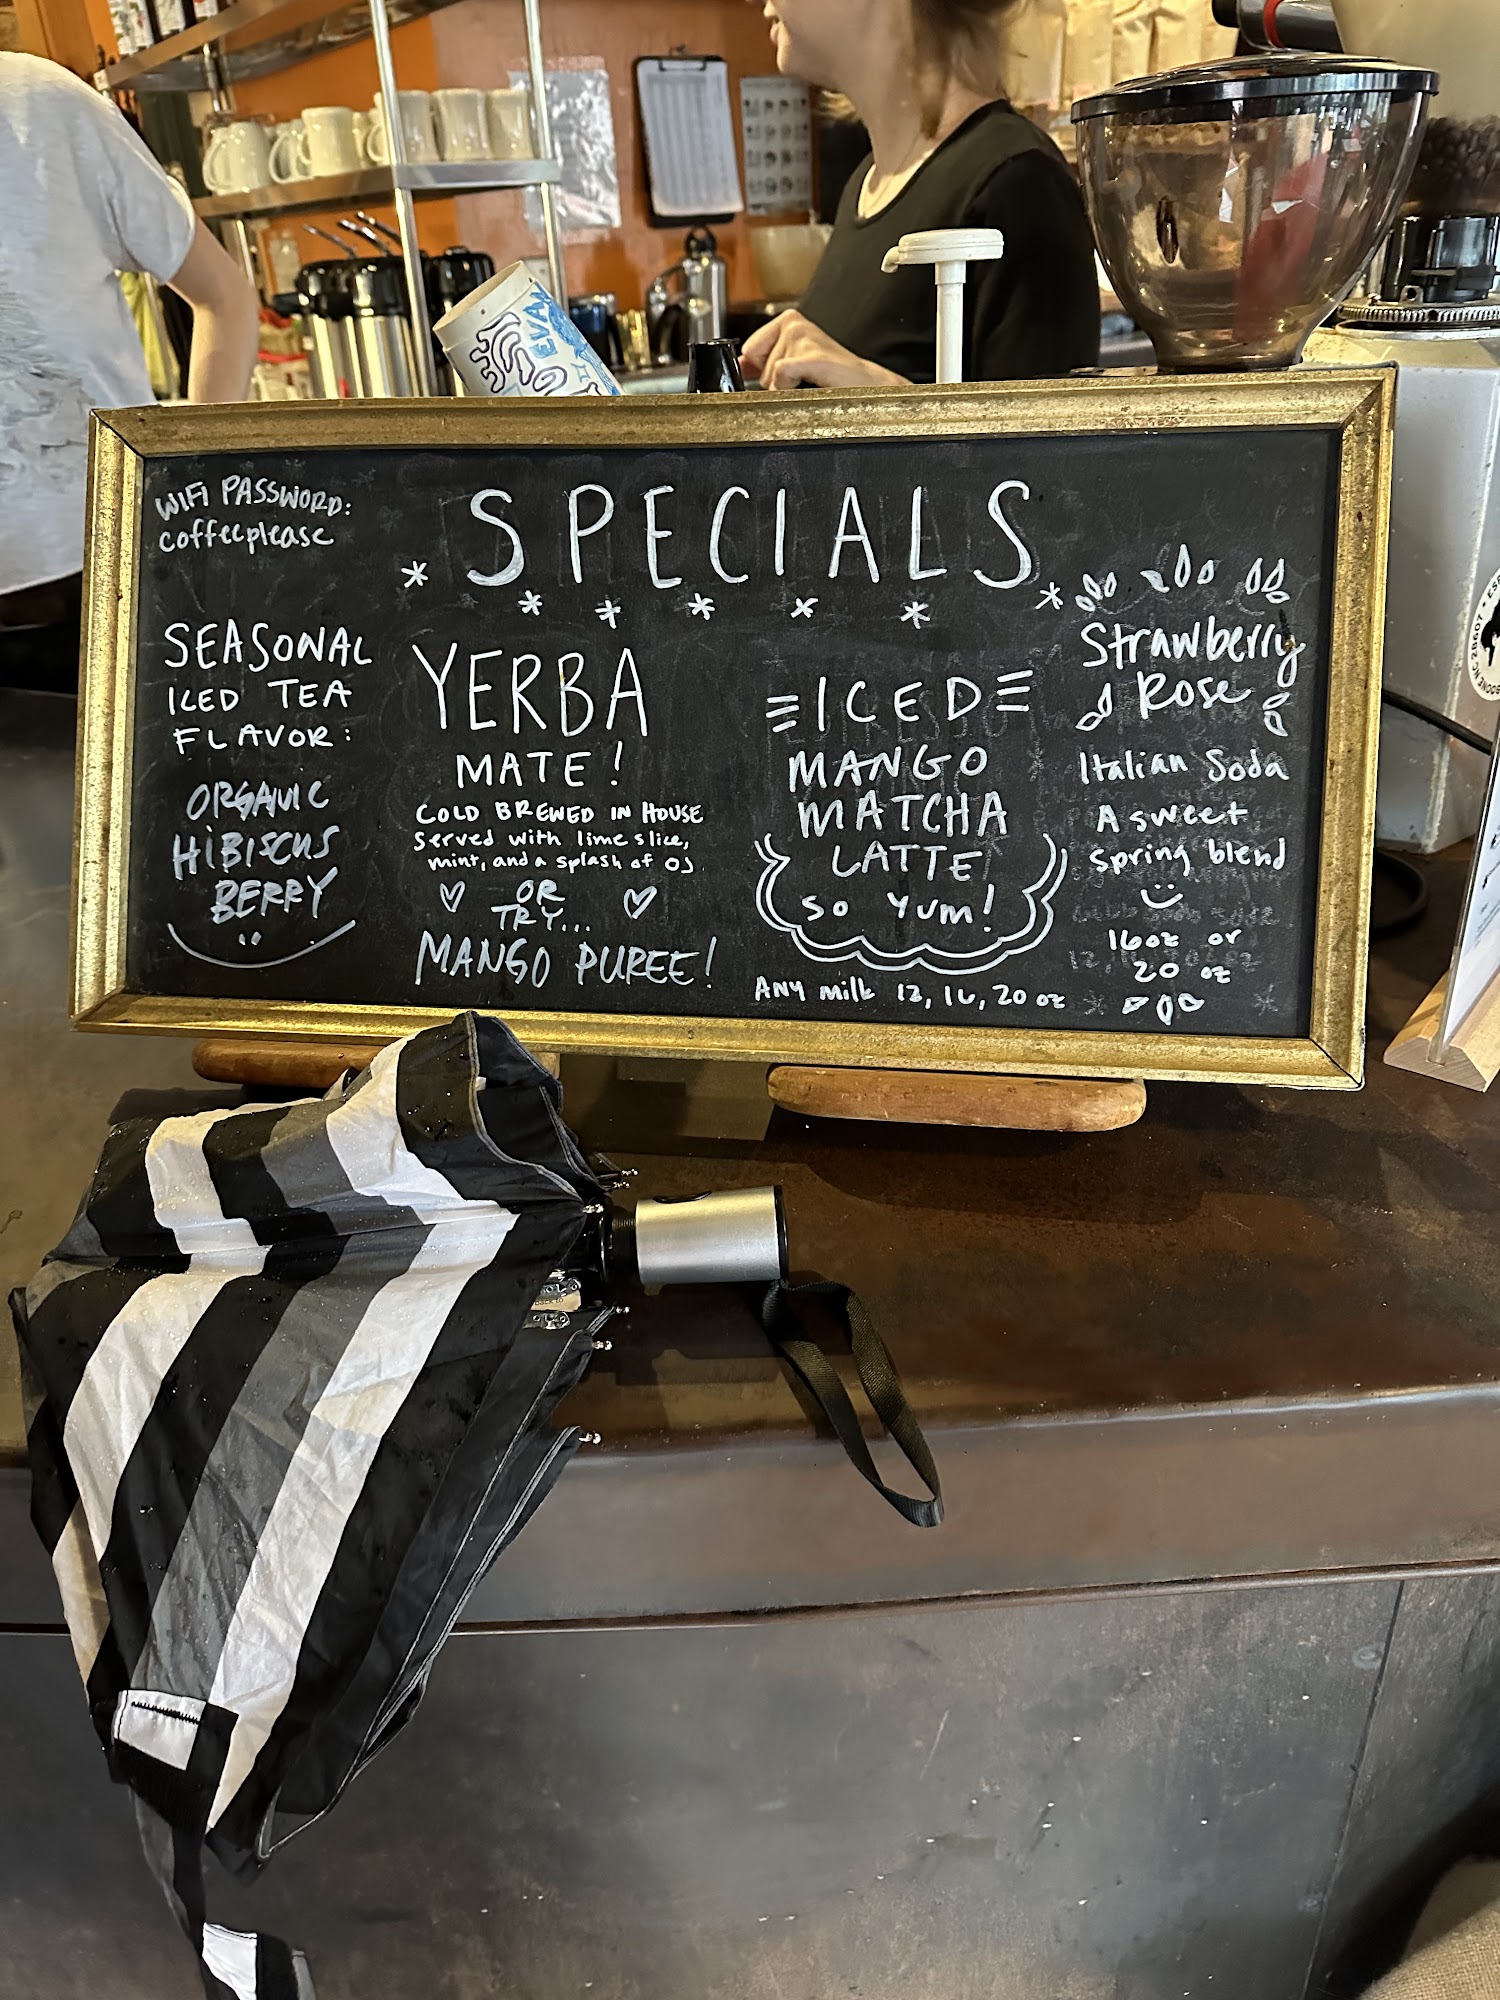 EVAN
WIFI PASSWORD:
coffeeplease
SPECIALS
SEASONAL
ICED TEA
FLAVOR:
ORGANIC
HIBISCUS
BERRY
YERBA
MATE!
COLD BREWED IN HOUSE
Served with lime slice,
mint, and a splash of OJ.
OR
TRY...
MANGO PUREE!
ICED
MANGO
MATCHA
LATTE
SO YUM!
ANY MILK 12, 16, 20 oz
Strawberry
Rose
Italian Soda
A sweet
spring blend
16oz or
20 oz
BOONE NC 28607 • ES